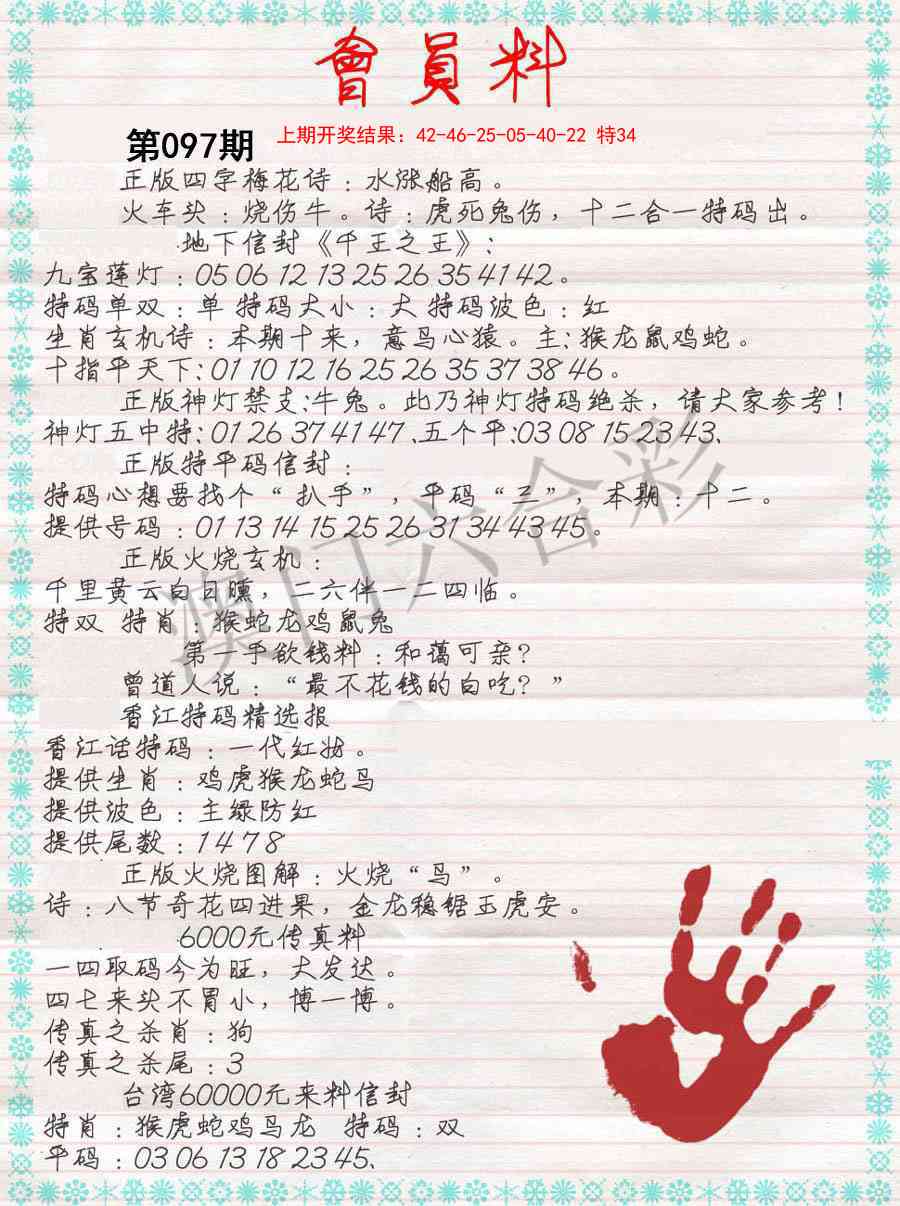 會員料
第097期 上期开奖结果：42-46-25-05-40-22 特34
正版四字梅花诗：水涨船高。
火车头：烧伤牛。诗：虎死兔伤，十二合一特码出。
地下信封《千王之王》：
九宝莲灯：05 06 12 13 25 26 35 41 42。
特码单双：单 特码大小：大 特码波色：红
生肖玄机诗：本期十来，意马心猿。主：猴龙鼠鸡蛇。
十指平天下：01 10 12 16 25 26 35 37 38 46。
正版神灯禁支：牛兔。此乃神灯特码绝杀，请大家参考！
神灯五中特：01 26 37 41 47、五个平：03 08 15 23 43、
正版特平码信封：
特码心想要找个“扒手”，平码“三”，本期：十二。
提供号码：01 13 14 15 25 26 31 34 43 45。
正版火烧玄机：
千里黄云白日曛，二六伴一二四临。
特双 特肖：猴蛇龙鸡鼠兔
第一手欲钱料：和蔼可亲？
曾道人说：“最不花钱的白吃？”
香江特码精选报
香江话特码：一代红妆。
提供生肖：鸡虎猴龙蛇马
提供波色：主绿防红
提供尾数：1 4 7 8
正版火烧图解：火烧“鸟”。
诗：八节奇花四进果，金龙稳锯玉虎安。
6000元传真料
一四取码今为旺，大发达。
四七来头不胃小，博一博。
传真之杀肖：狗
传真之杀尾：3
台湾60000元来料信封
特肖：猴虎蛇鸡马龙 特码：双
平码：03 06 13 18 23 45、
澳门六合彩